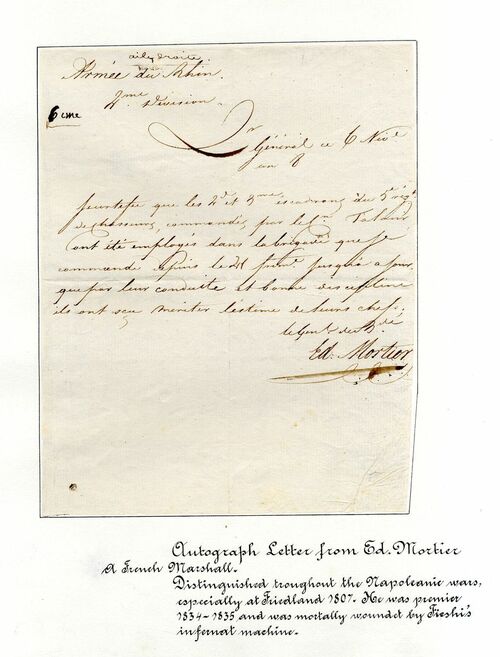 aile droite
Armée du Rhin
Division
6 eme
Qr Général ce 6 Nive
an 8
je certifie que les 2d et 3me escadrons du 5e rég
de chasseurs, commandés par le
ont été employés dans la brigade que je
commande depuis le jusqu'a ce jour,
que par leur conduite et bonne discipline
ils ont sçu mériter l'éstime de leurs chefs.
le Genl de Bde
Ed. Mortier
Autograph Letter from Ed. Mortier
A French Marshall.
Distinguished troughout the Napoleanic wars,
especially at Friedland 1807. He was premier
1834-1835 and was mortally wounded by Fieshi's
infernat machine.